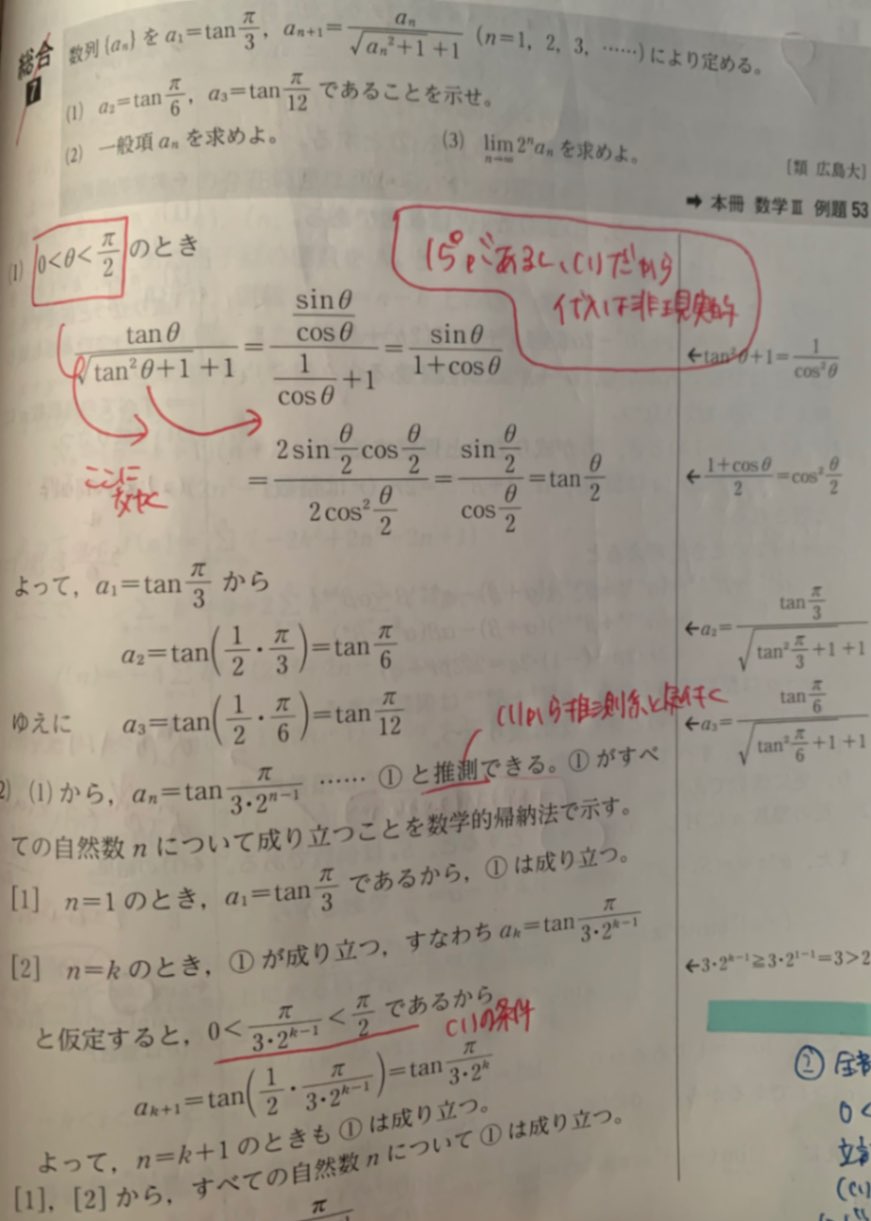 総合
7
数列{aₙ}を a₁=tan π/3, aₙ₊₁=aₙ/(√(aₙ²+1)+1) (n=1, 2, 3, ……)により定める。
(1) a₂=tan π/6, a₃=tan π/12 であることを示せ。
(2) 一般項 aₙ を求めよ。 (3) lim n→∞ 2ⁿaₙ を求めよ。
[類 広島大]
➡ 本冊 数学Ⅲ 例題53
(1) 0<θ<π/2 のとき
15° であるし、(1)だから
代入は非現実的
tanθ/(√(tan²θ+1)+1) = (sinθ/cosθ)/(1/cosθ+1) = sinθ/(1+cosθ)
←tan²θ+1=1/cos²θ
ここに
= (2sin θ/2 cos θ/2)/(2cos² θ/2) = (sin θ/2)/(cos θ/2) = tan θ/2
←(1+cosθ)/2=cos² θ/2
よって, a₁=tan π/3 から
a₂=tan(1/2・π/3)=tan π/6
←a₂=(tan π/3)/(√(tan² π/3+1)+1)
(1)から推測系と気付く
ゆえに a₃=tan(1/2・π/6)=tan π/12
←a₃=(tan π/6)/(√(tan² π/6+1)+1)
2) (1)から, aₙ=tan π/(3・2ⁿ⁻¹) …… ① と推測できる。①がすべ
ての自然数 n について成り立つことを数学的帰納法で示す。
[1] n=1 のとき, a₁=tan π/3 であるから, ①は成り立つ。
[2] n=k のとき, ①が成り立つ, すなわち aₖ=tan π/(3・2ᵏ⁻¹)
←3・2ᵏ⁻¹≧3・2¹⁻¹=3>2
と仮定すると, 0<π/(3・2ᵏ⁻¹)<π/2 であるから
(1)の条件
aₖ₊₁=tan(1/2・π/(3・2ᵏ⁻¹))=tan π/(3・2ᵏ)
よって, n=k+1 のときも①は成り立つ。
[1], [2] から, すべての自然数 n について①は成り立つ。
π
②
0<
(1)